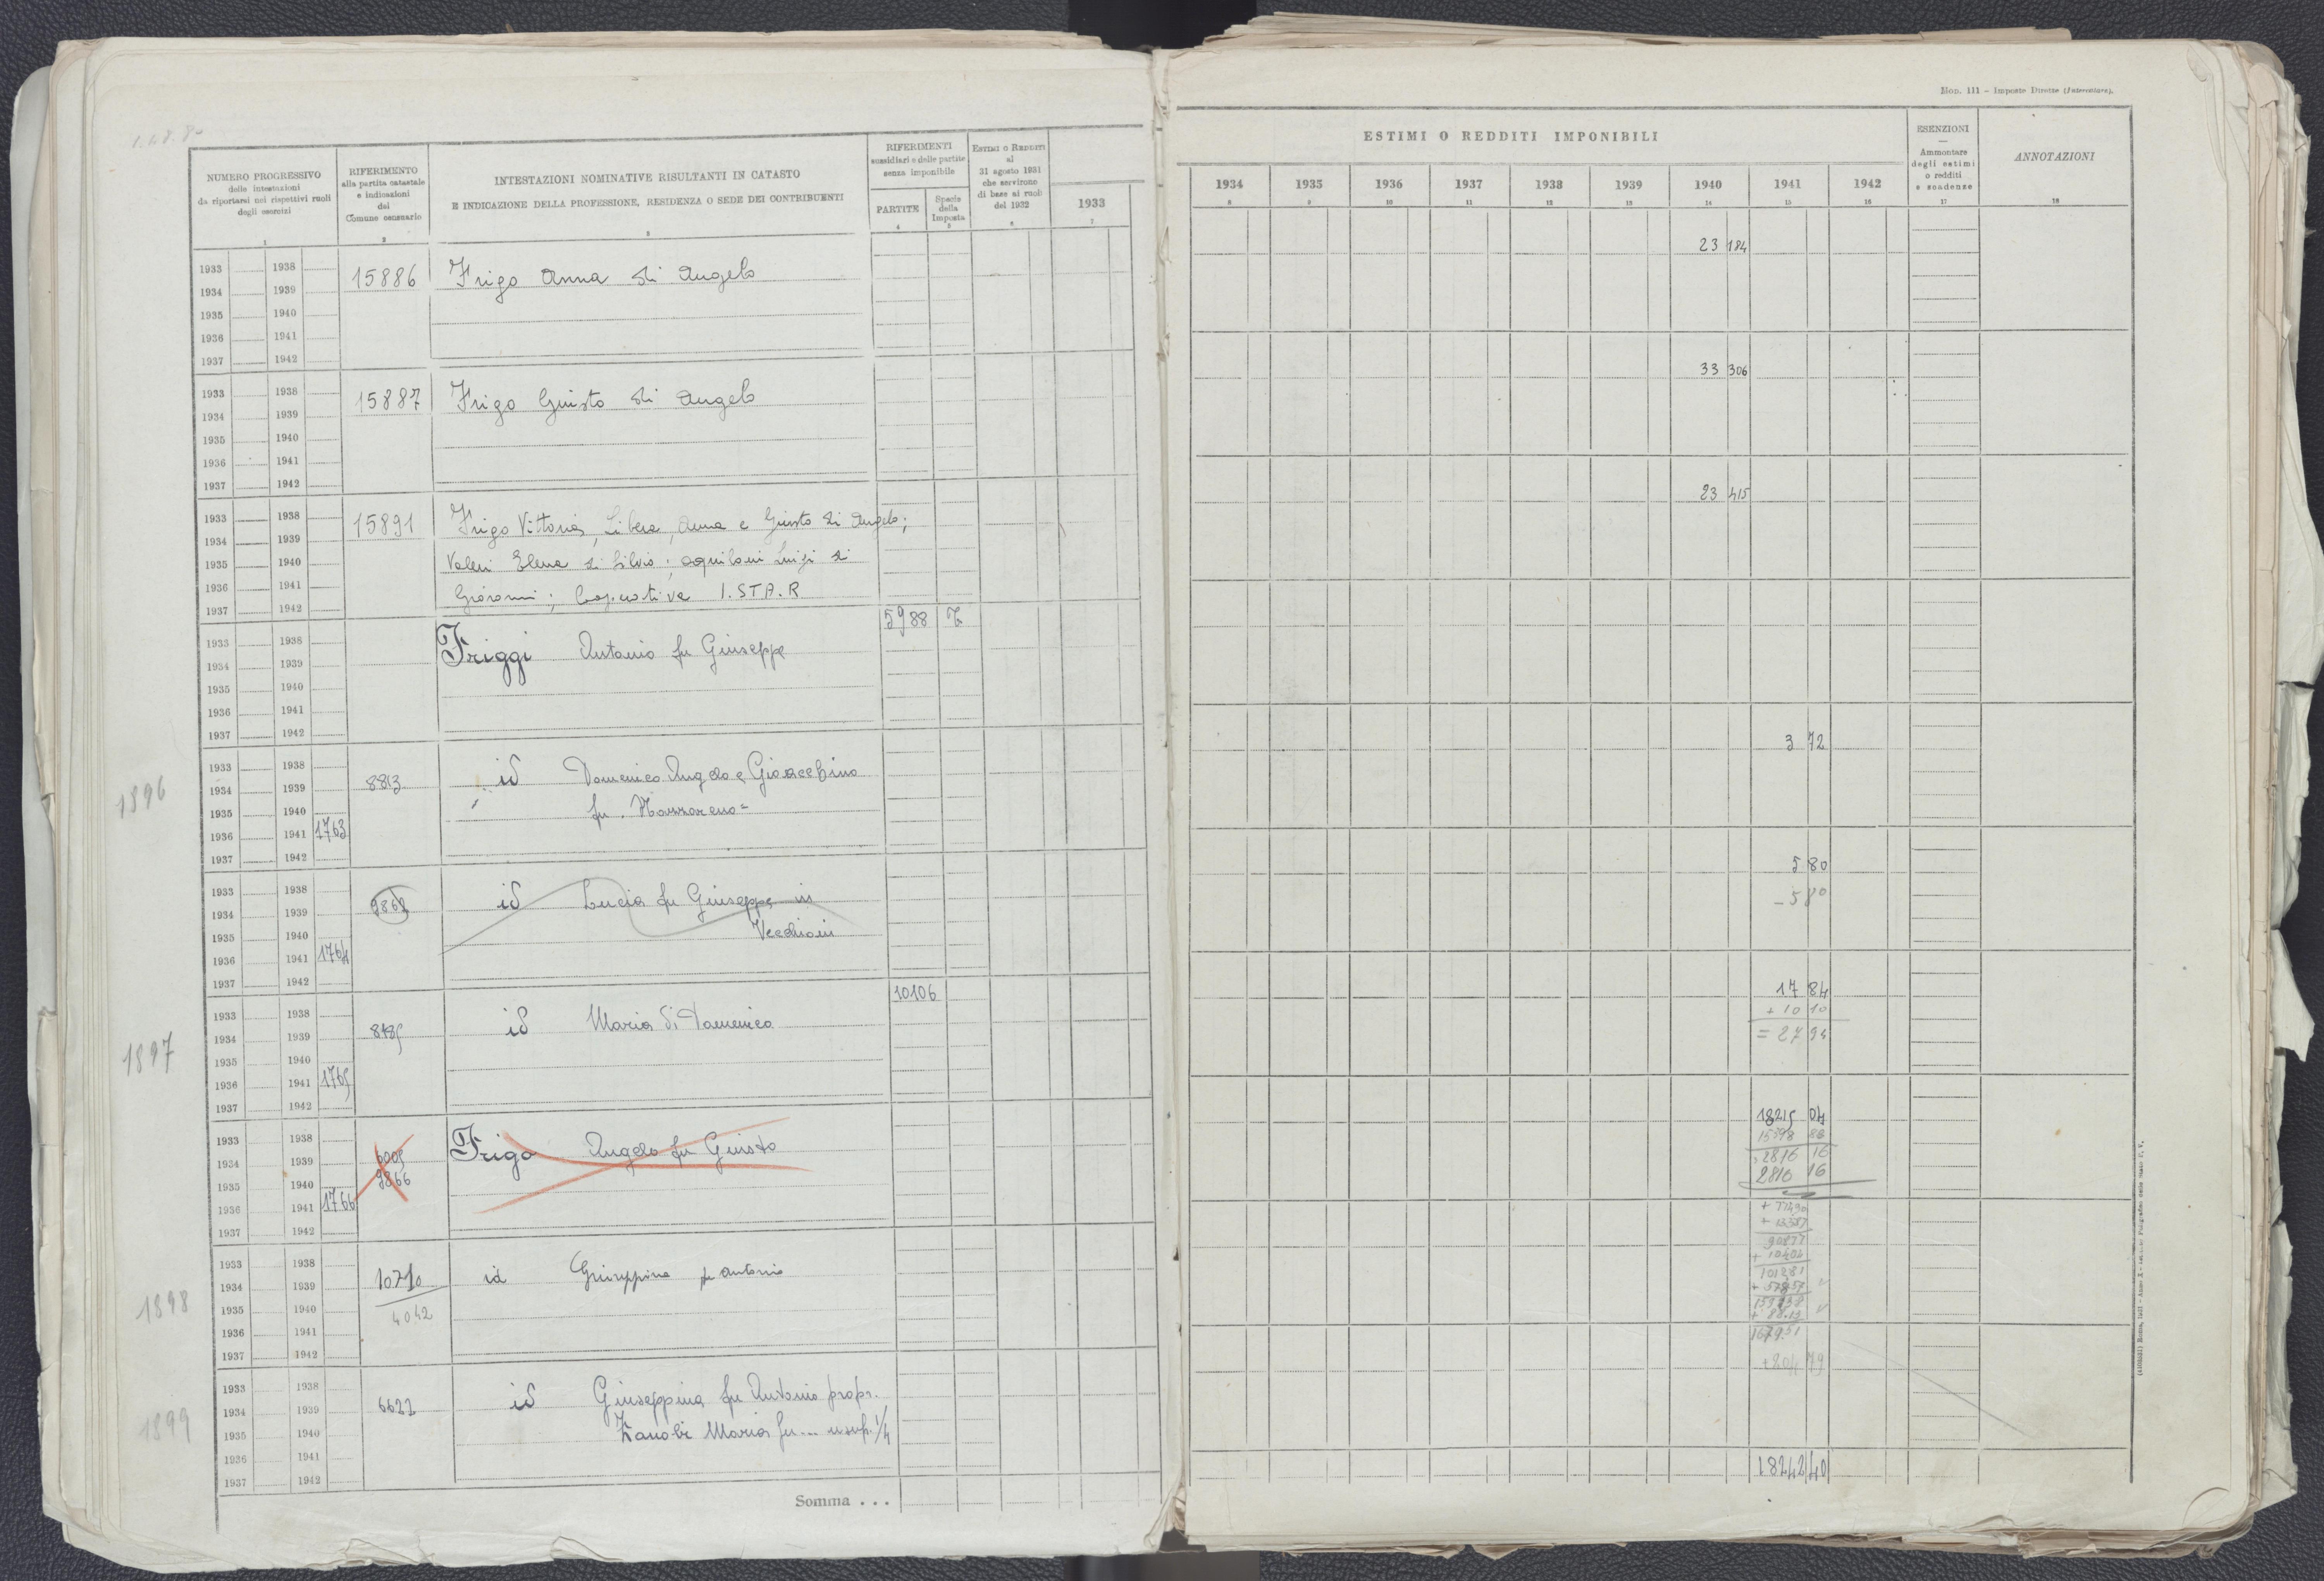 Mod. 111 - Imposte Dirette (Intercalare).
NUMERO PROGRESSIVO
delle intestazioni
da riportarsi nei rispettivi ruoli
degli esercizi
1
RIFERIMENTO
alla partita catastale
e indicazioni
del
Comune censuario
2
INTESTAZIONI NOMINATIVE RISULTANTI IN CATASTO
E INDICAZIONE DELLA PROFESSIONE, RESIDENZA O SEDE DEI CONTRIBUENTI
3
RIFERIMENTI
sussidiari e delle partite
senza imponibile
PARTITE
4
Specie
della
Imposta
5
ESTIMI O REDDITI
al
31 agosto 1931
che servirono
di base ai ruoli
del 1932
6
1933
7
ESTIMI O REDDITI IMPONIBILI
1934 1935 1936 1937 1938 1939 1940 1941 1942
8 9 10 11 12 13 14 15 16
ESENZIONI
Ammontare
degli estimi
o redditi
e scadenze
17
ANNOTAZIONI
18
1933 1938
1934 1939 15886 Frigo Anna di Angelo 23 184
1935 1940
1936 1941
1937 1942
1933 1938
1934 1939 15887 Frigo Giusto di Angelo 33 306
1935 1940
1936 1941
1937 1942
1933 1938 15891 Frigo Vittoria, Libera, Anna e Giusto di Angelo; 23 415
1934 1939
1935 1940 Valeri Elena di Silvio; Aquilani Luigi di
1936 1941 Giovanni; Cooperativa I.STA.R
1937 1942
5988
1933 1938
1934 1939 Friggi Antonio fu Giuseppe
1935 1940
1936 1941
1937 1942
1933 1938
1896 1934 1939 8813 id Domenico Angelo e Gioacchino 3 72
1935 1940 fu Nazzareno
1936 1941 1763
1937 1942
1933 1938 5 80
1934 1939 id Lucia fu Giuseppe in - 5 80
1935 1940 Vecchioni
1936 1941 1764
1937 1942
10106
1933 1938 17 84
1897 1934 1939 id Maria di Domenico + 10 10
1935 1940 = 27 94
1936 1941 1765
1937 1942
1933 1938 18215 04
1934 1939 Frigo Angelo fu Giusto
1935 1940 9866 2816 16
1936 1941 1766 2816 16
1937 1942
1933 1938
1898 1934 1939 10710 id Giuseppina fu Antonio
1935 1940 4042
1936 1941
1937 1942
1933 1938
1899 1934 1939 6622 id Giuseppina fu Antonio propr.
1935 1940 Zanobi Maria fu ... usuf. 1/4
1936 1941
1937 1942
Somma . . . 18242 40